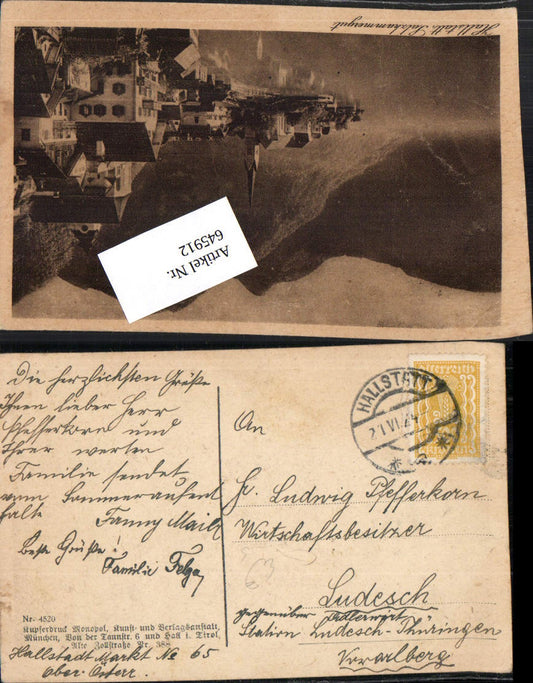 Hallstatt Salzkammergut.
Artikel Nr.
645912
Die herzlichsten Grüße
Ihnen lieber Herr
Pfefferkorn und
Ihrer werten
Familie sendet
vom Sommeraufent
halte Fanny
Beste Grüße!
Familie
Nr. 4520
Kupferdruck Monopol, Kunst- und Verlagsanstalt,
München, Von der Tannstr. 6 und Hall i. Tirol,
Alte Zollstraße Nr. 38b.
Hallstadt Markt No 65
Ober. Österr.
HALLSTATT
21.VI.24
österreich
An
H. Ludwig Pfefferkorn
Wirtschaftsbesitzer
63
Ludesch
gegenüber
Station Ludesch-Thüringen
Vorarlberg